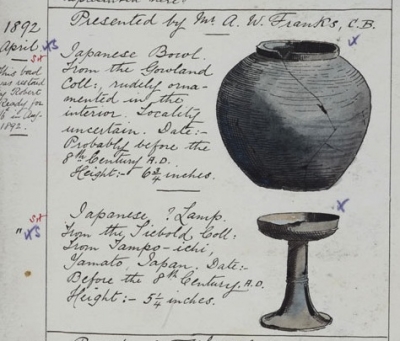 Presented by Mr. A. W. Franks, C.B.
1892
April
XS
X
Japanese Bowl.
From the Gowland
Coll: rudely orna-
mented in the
interior. Locality
uncertain. Date:-
Probably before the
8th Century A.D.
Height:- 6¾ inches.
This bowl
was
by Robert
Ready for
in Aug.
1892.
" XS
X
Japanese ? Lamp.
From the Siebold Coll:
From Tampo-ichi,
Yamato, Japan. Date:-
Before the 8th Century, A.D.
Height:- 5¼ inches.